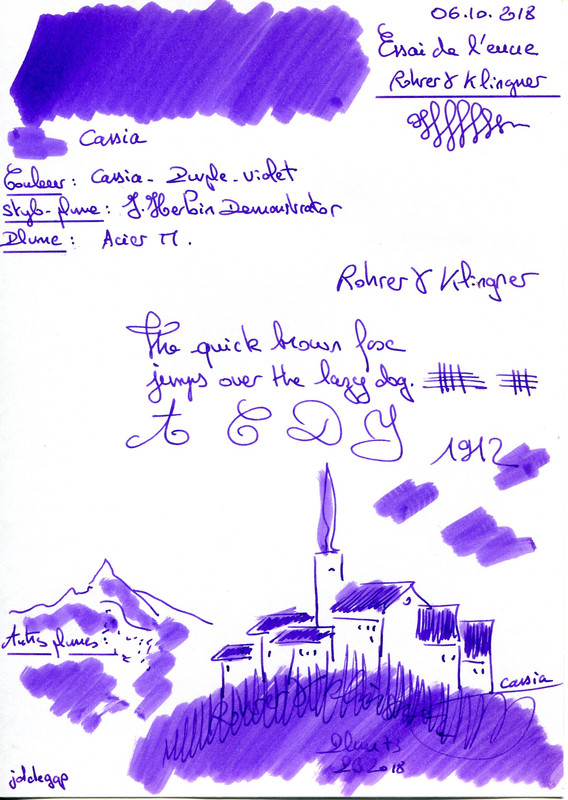 06.10.2018
Essai de l'encre
Rohrer & Klingner
Cassia
Couleur : Cassia - Purple-violet
Stylo-plume : J. Herbin Demonstrator
Plume : Acier M.
Rohrer & Klingner
The quick brown fox
jumps over the lazy dog.
A C D Y
1912
Autres plumes :
Cassia
Rohrer & Klingner
2018